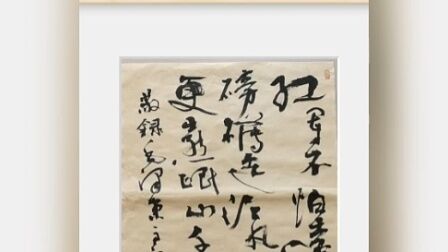 红军不怕远
磅礴走泥丸
更喜岷山千
敬録毛泽东